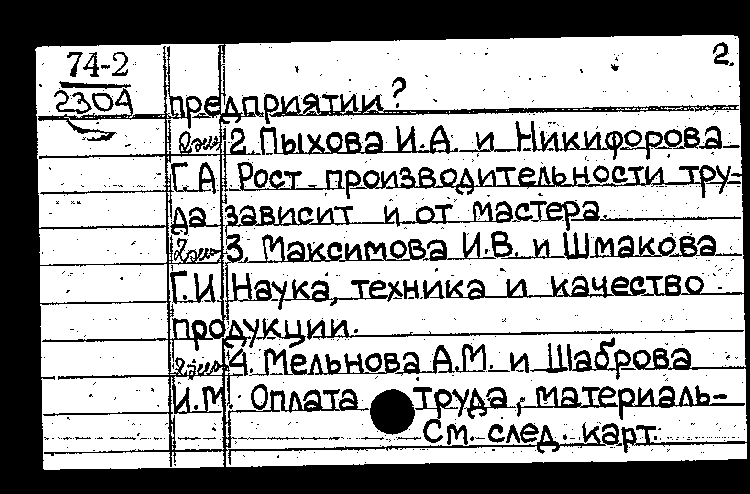 74-2
2304
2.
предприятии?
2 экз 2. Пыхова И.А. и Никифорова
Г.А Рост производительности тру-
да зависит и от мастера.
2 экз 3. Максимова И.В. и Шмакова
Г.И. Наука, техника и качество
продукции.
2 экз 4. Мельнова А.М. и Шаброва
И.М. Оплата труда, материаль-
См. след. карт.